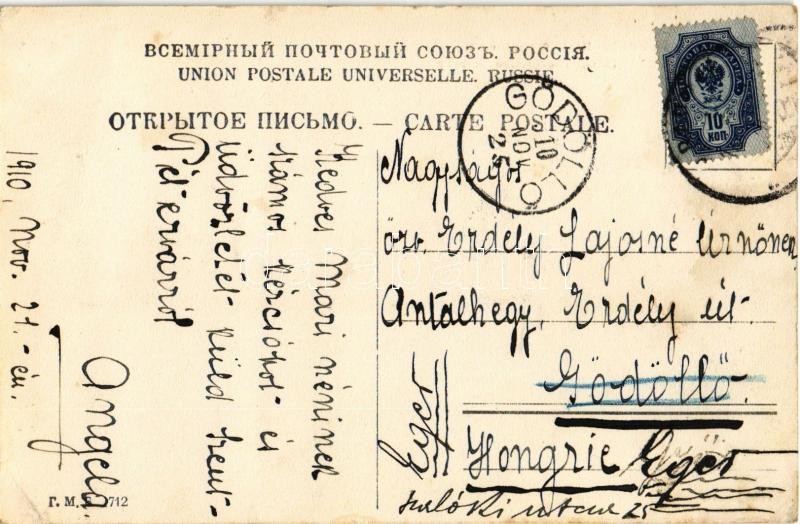 ВСЕМІРНЫЙ ПОЧТОВЫЙ СОЮЗЪ. РОССІЯ.
UNION POSTALE UNIVERSELLE. RUSSIE.
ОТКРЫТОЕ ПИСЬМО. — CARTE POSTALE.
10
КОП
GÖDÖLLŐ
910 NOV 25
Kedves Mari néninek
számos kézcsókot és
üdvözletét küld Szent-
Pétervárról
Angela
1910, Nov. 21.-én.
Nagyságos
özv. Erdély Lajosné Úrnőnek
Antalhegy, Erdély út.
Gödöllő.
Hongrie
Eger
Eger
utca 25
Г. М. 712